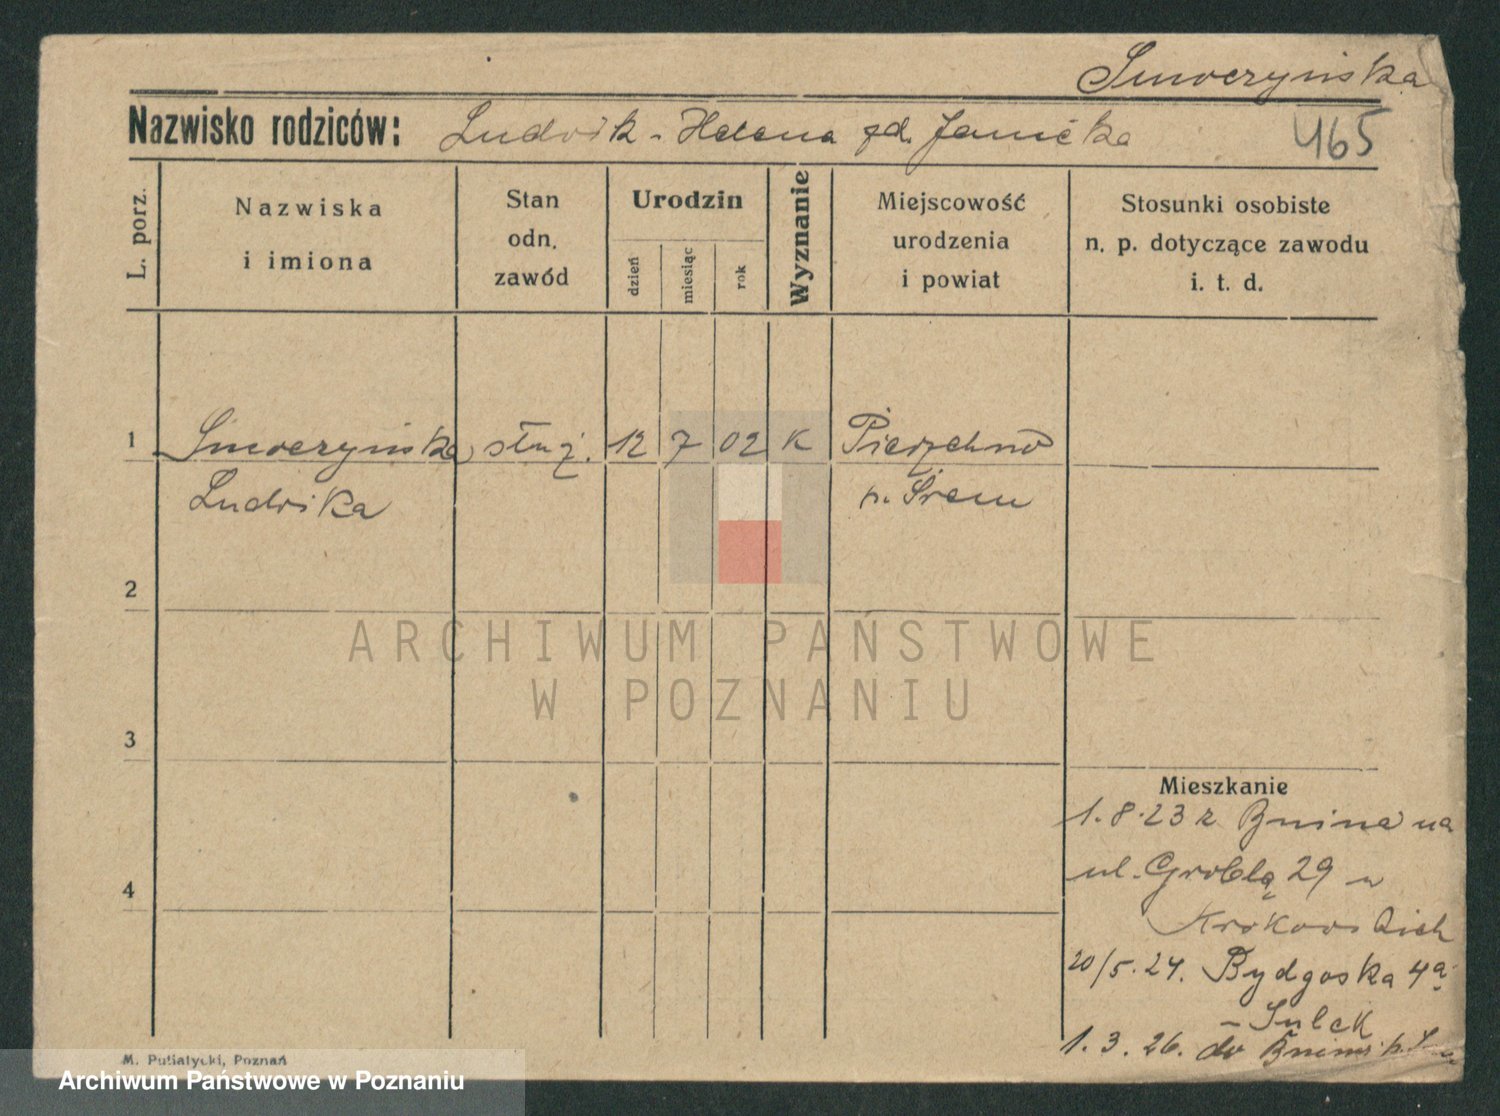 Smoczyńska
Nazwisko rodziców: Ludwik - Helena zd. Janicka
465
L. porz.
Nazwiska
i imiona
Stan
odn.
zawód
Urodzin
dzień
miesiąc
rok
Wyznanie
Miejscowość
urodzenia
i powiat
Stosunki osobiste
n. p. dotyczące zawodu
i. t. d.
1 Smoczyńska służ. 12 7 02 K Pierzchno
Ludwika p. Śrem
2
ARCHIWUM PAŃSTWOWE
W POZNANIU
3
Mieszkanie
1.8.23 z Bnina na
ul. Groblą 29 u
4
20/5.24. Bydgoska 4a
1.3.26. do Bnina p.
M. Putiatycki, Poznań
Archiwum Państwowe w Poznaniu